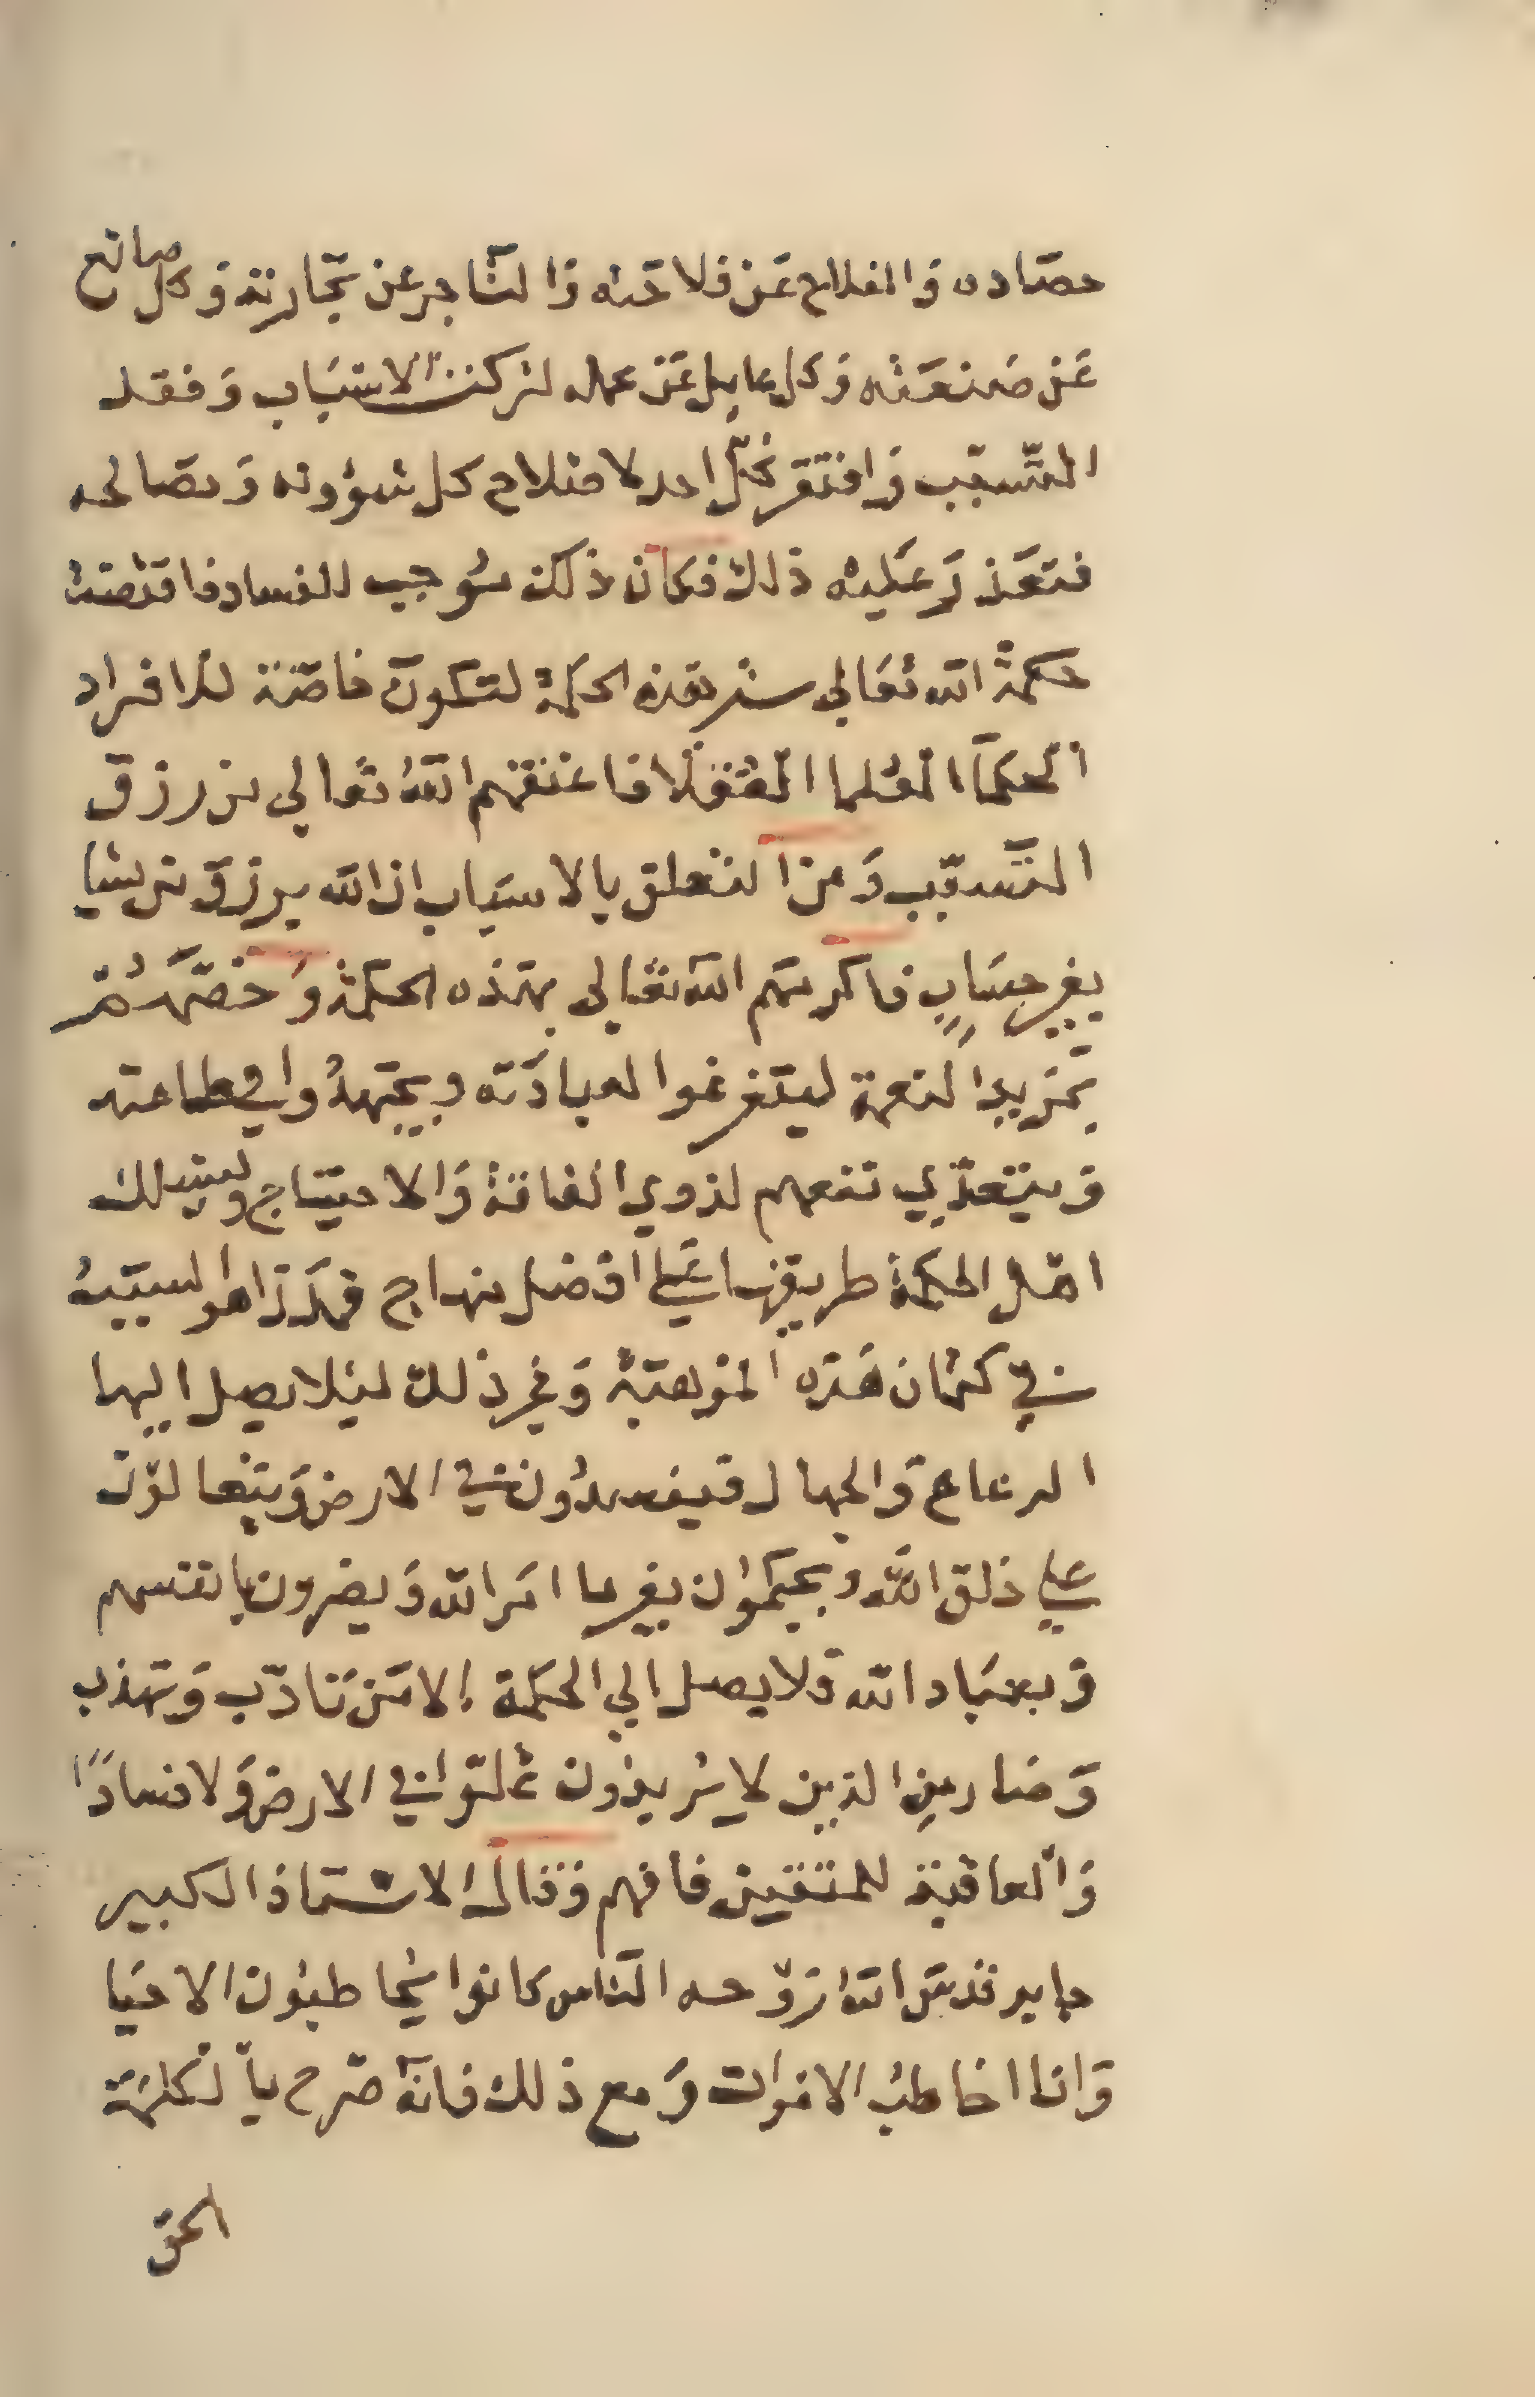 حصاده والفلاح عن فلاحته والتاجر عن تجارته وكل صانع
عن صنعته وكل عامل عن عمله لتركت الاسباب وفقد
المتسبب وافتقر كل احد لاصلاح كل شؤونه ومصالحه
فتعذر عليه ذلك فكان ذلك موجب للفساد فاقتضت
حكمة الله تعالى ستر هذه الحكمة لتكون خاصة للافراد
الحكما العلما الفضلا فاعتقهم الله تعالى من رزق
التسبب ومن التعلق بالاسباب ان الله يرزق من يشا
بغير حساب فاكرمهم الله تعالى بهذه الحكمة وخصهم
بمزيد النعمة ليتفرغوا لعبادته ويجتهدوا في طاعته
ويتعدي نفعهم لذوي الفاقة والاحتياج وليسلك
اهل الحكمة طريقها علي افضل منهاج فهذا هو السبب
في كتمان هذه الموهبة وغير ذلك ليلا يصل اليها
الرعاع والجهال فيفسدون في الارض ويتعالون
علي خلق الله ويحكمون بغير ما امر الله ويضرون بانفسهم
وبعباد الله ولا يصل الي الحكمة الا من تادب وتهذب
وصار من الذين لا يريدون علوا في الارض ولا فسادا
والعاقبة للمتقين فافهم وقال الاستاذ الكبير
جابر قدس الله روحه الناس كانوا يخاطبون الاحيا
وانا اخاطب الاموات ومع ذلك فانه صرح بالكلمة
الحق